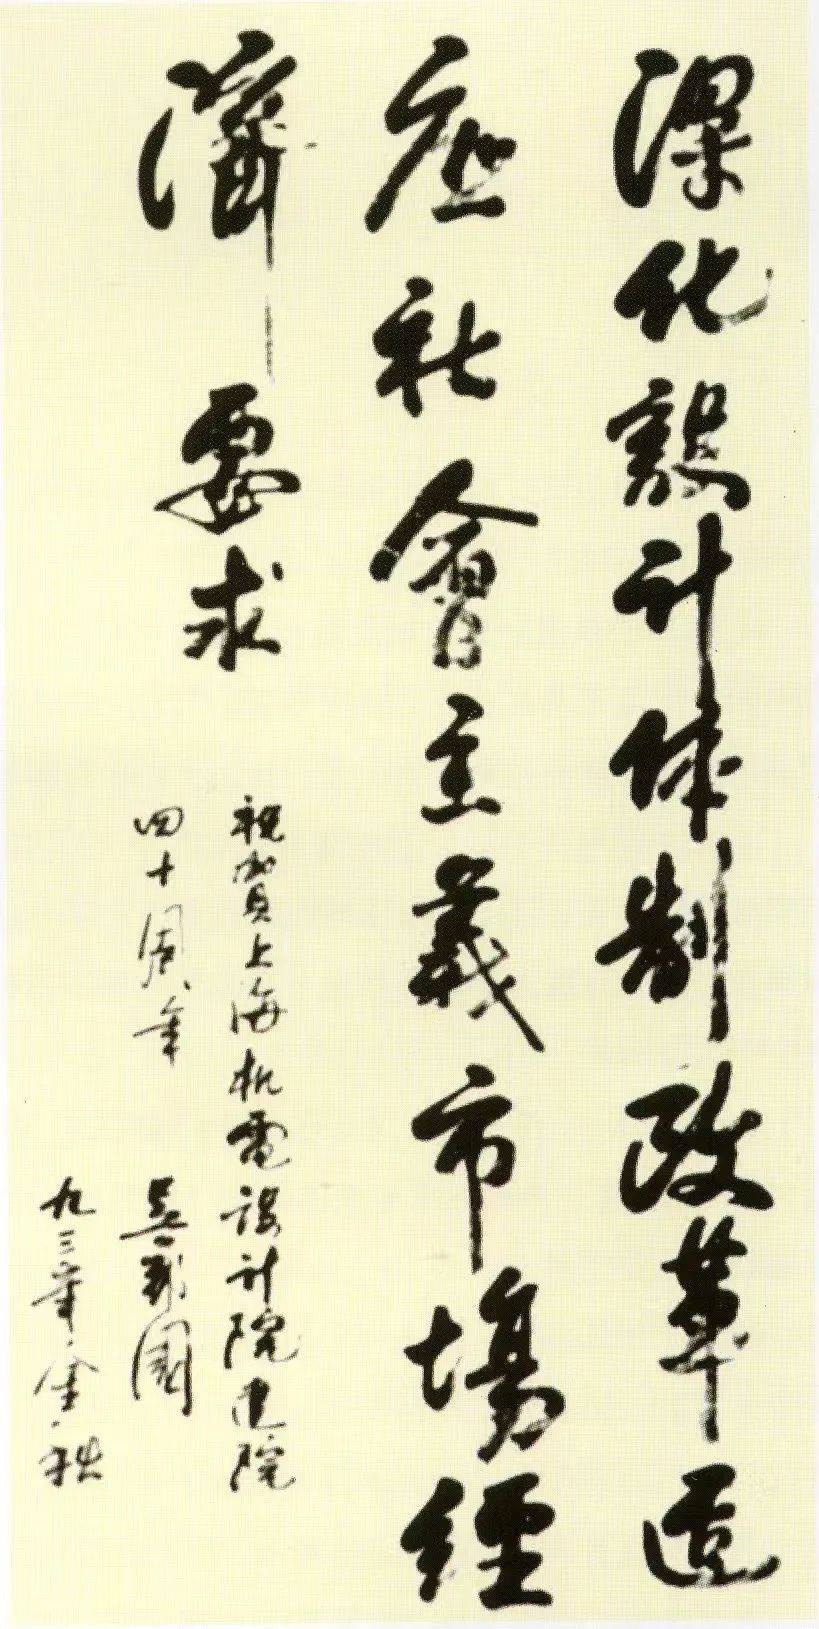 深化設计体制改革适
应社會主義市場經
濟要求
祝賀上海机電设计院建院
四十周年
吴邦國
九三年金秋